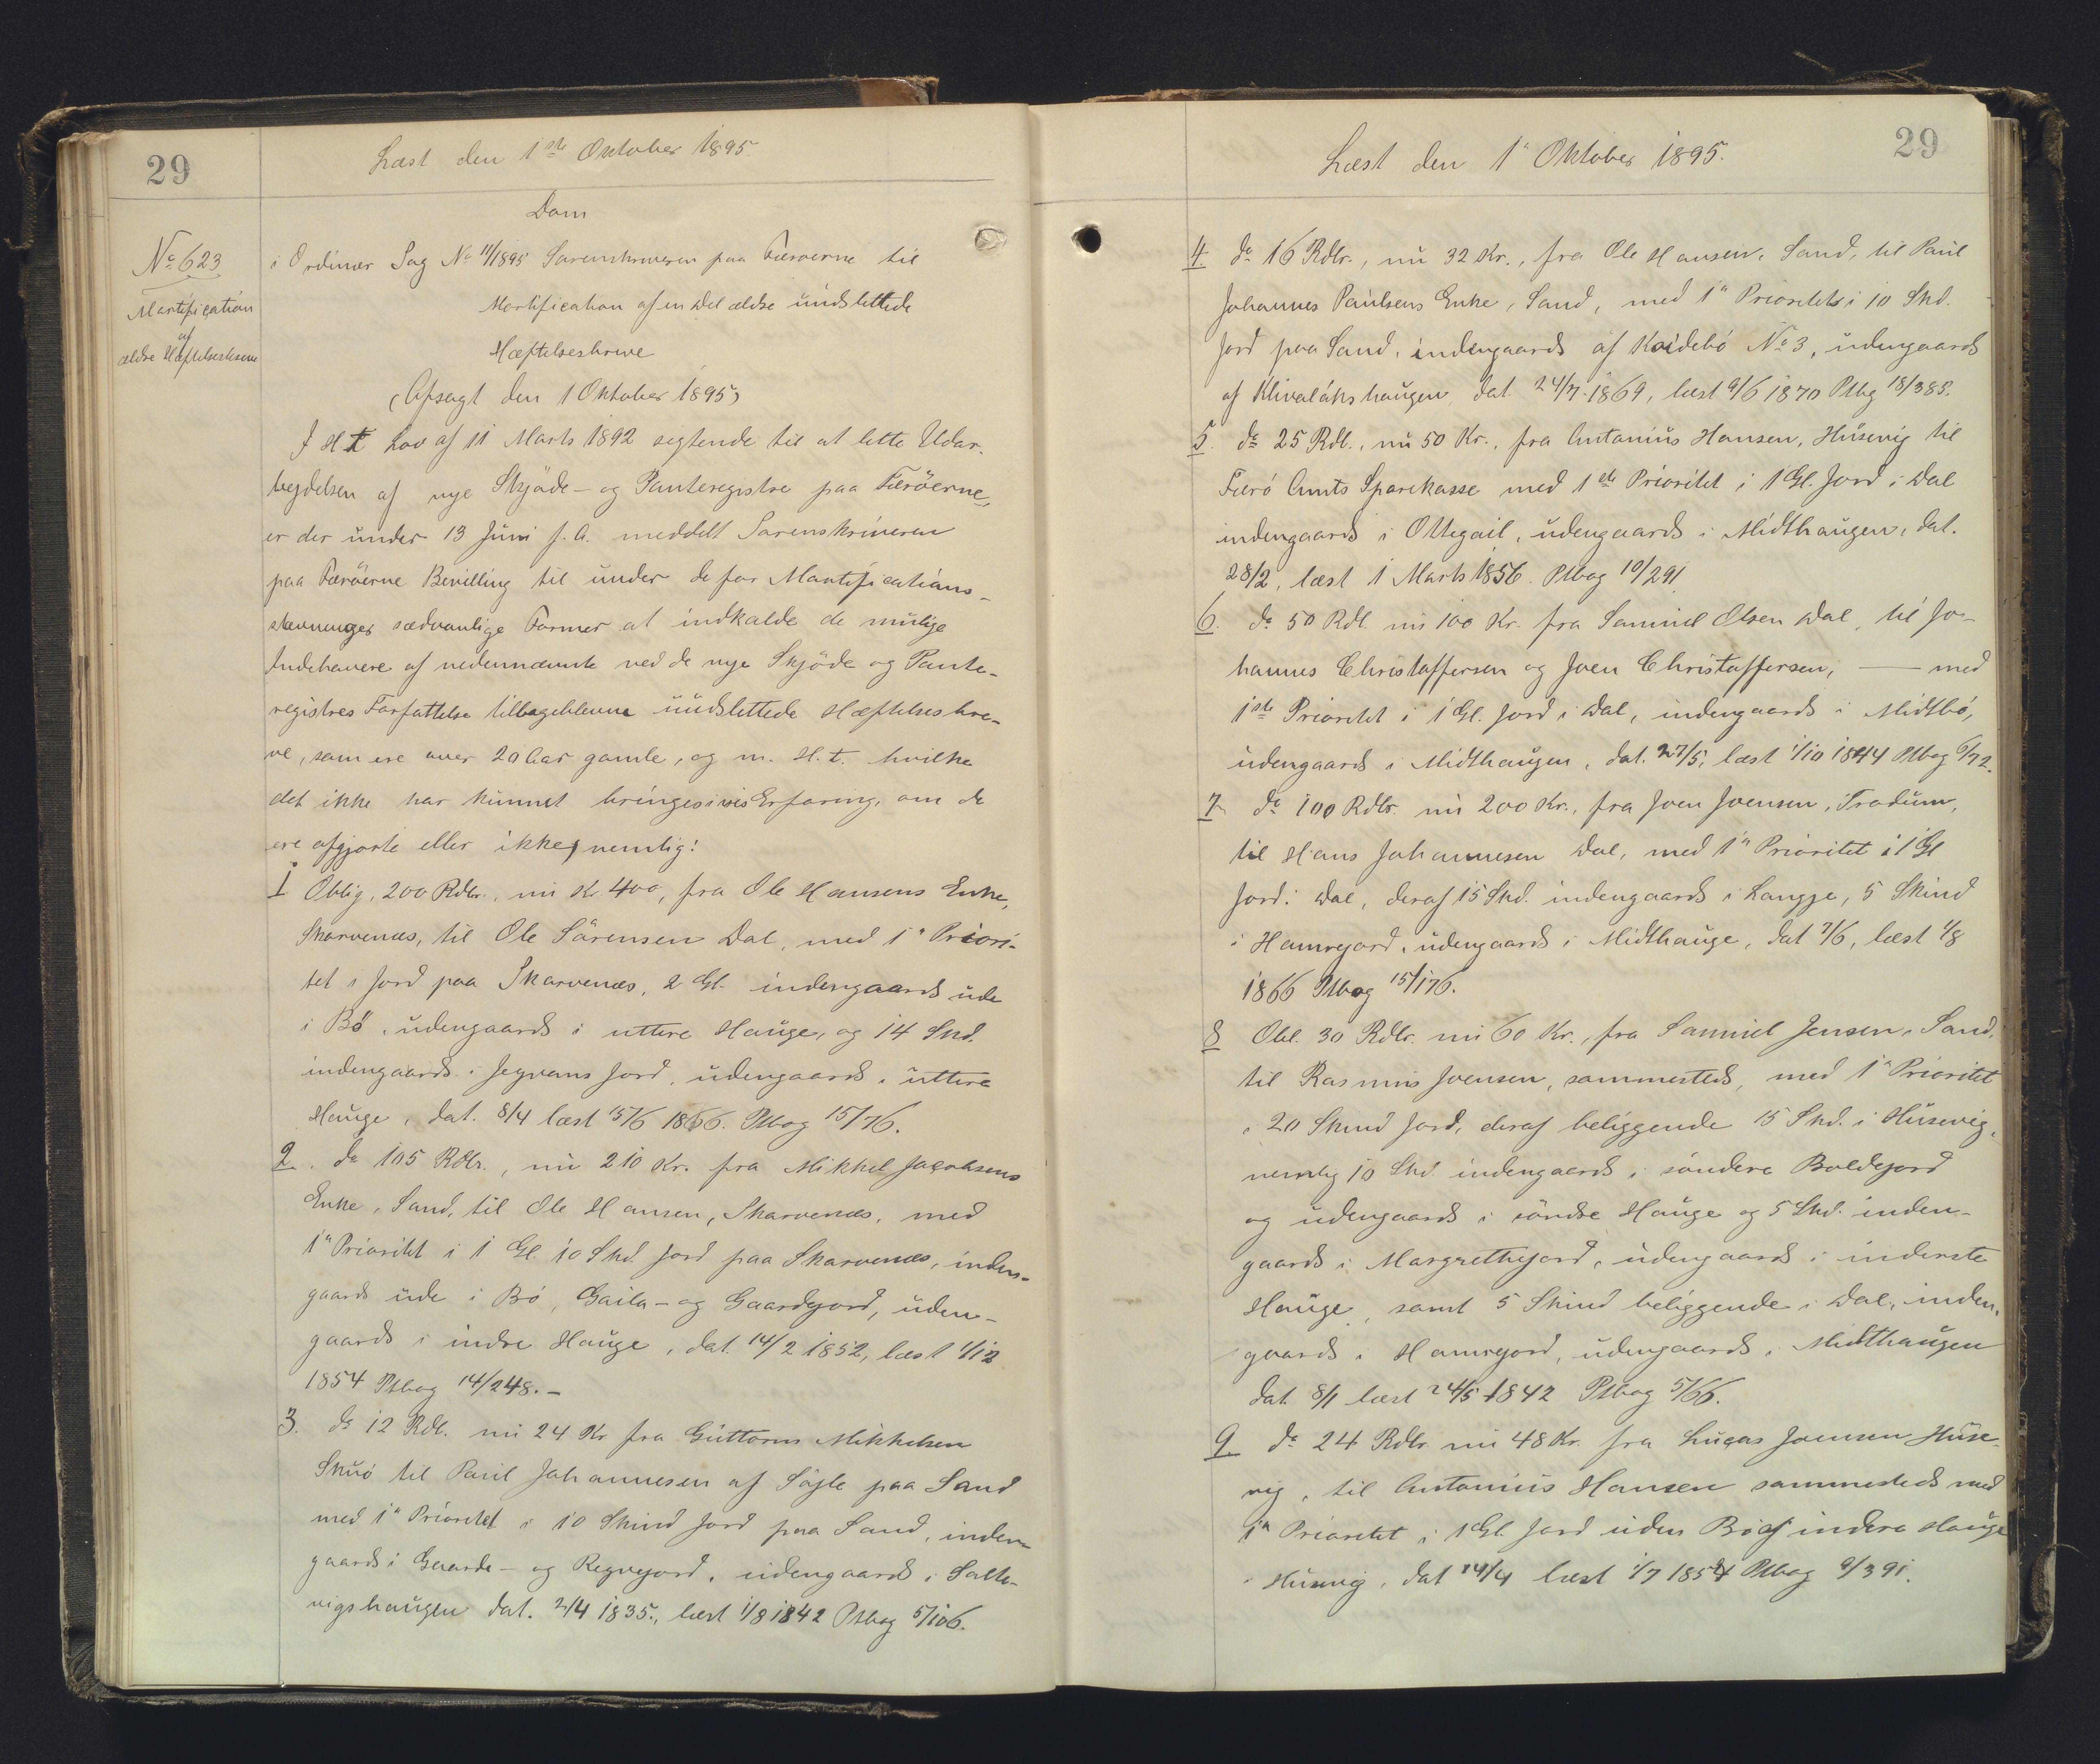 29
Læst den 1ste Oktober 1895.
Dom
No 623
Mortification
af
ældre Hæftelsesbreve
i Ordinær Sag No 11/1895 Sorenskriveren paa Færoerne til
Mortification af en Del ældre uudslettede
Hæftelsesbreve
(Afsagt den 1 Oktober 1895)
I H t Lov af 11 Marts 1892 sigtende til at lette Udar-
bejdelsen af nye Skjøde- og Panteregistre paa Færöerne,
er der under 13 Juni f. A. meddelt Sorenskriveren
paa Færöerne Bevilling til under de for Mortifications-
stævninger sædvanlige Former at indkalde de mulige
Indehavere af nedennævnte ved de nye Skjöde og Pante-
registres Forfattelse tilbageblevne uudslettede Hæftelsesbre-
ve, som ere over 20 Aar gamle, og m. H. t. hvilke
det ikke har kunnet bringes i vis Erfaring, om de
ere afgjorte eller ikke, nemlig:
1 Oblig. 200 Rdlr., nu Kr. 400, fra Ole Hansens Enke,
Skarvenæs, til Ole Sörensen Dal, med 1" Priori-
tet i Jord paa Skarvenæs, 2 Gl. indengaards ude
i Bö, udengaards i uttere Hauge, og 14 Skd.
indengaards i Jegvans Jord, udengaards i uttere
Hauge, dat. 8/4 læst 15/6 1866. Ptbog 15/76.
2. do 105 Rdlr., nu 210 Kr. fra Mikkel Jacobsens
Enke, Sand, til Ole Hansen, Skarvenæs, med
1" Prioritet i 1 Gl. 10 Skd Jord paa Skarvenæs, inden-
gaards ude i Bö, Gaila- og Gaardejord, uden-
gaards i indre Hauge, dat. 14/2 1852, læst 1/12
1854 Ptbog 14/248.-
3. do 12 Rdl. nu 24 Kr fra Guttorm Mikkelsen
Skuö til Paul Johannesen af Söjle paa Sand
med 1" Prioritet i 10 Skind Jord paa Sand, inden-
gaards i Gaarde- og Regnejord, udengaards i Salte-
vigshaugen dat. 2/4 1835., læst 1/8 1842 Ptbog 5/106.
29
Læst den 1" Oktober 1895.
4. do 16 Rdlr., nu 32 Kr., fra Ole Hansen, Sand, til Paul
Johannes Paulsens Enke, Sand, med 1" Prioritet i 10 Skd.
Jord paa Sand, indengaards af Koidebö No 3, udengaards
af Klivalákshaugen, dat. 24/7 1869, læst 9/6 1870 Ptbg 18/385.
5. do 25 Rdl., nu 50 Kr., fra Antonius Hansen, Husevig til
Færö Amts Sparekasse med 1ste Prioritet i 1 Gl. Jord i Dal
indengaards i Ottegail, udengaards i Midthaugen, dat.
28/2, læst 1 Marts 1856. Ptbog 10/291
6. do 50 Rdl. nu 100 Kr. fra Samuel Olsen Dal, til Jo-
hannes Christoffersen og Joen Christoffersen, — med
1ste Prioritet i 1 Gl. Jord i Dal, indengaards i Midtbö,
udengaards i Midthaugen, dat. 27/5, læst 1/10 1844 Ptbog 6/72.
7. do 100 Rdlr. nu 200 Kr., fra Joen Joensen, Tradum,
til Hans Johannesen Dal, med 1" Prioritet i 1 Gl
Jord i Dal, deraf 15 Skd. indengaards i Langje, 5 Skind
i Hamrejord, udengaards i Midthauge, dat 7/6, læst 1/8
1866 Ptbog 15/176.
8 Obl. 30 Rdlr. nu 60 Kr., fra Samuel Jensen, Sand,
til Rasmus Joensen, sammesteds, med 1" Prioritet
i 20 Skind Jord, deraf beliggende 15 Skd. i Husevig,
nemlig 10 Skd. indengaards i söndere Boldejord
og udengaards i söndre Hauge og 5 Skd. inden-
gaards i Margrethejord, udengaards i inderste
Hauge, samt 5 Skind beliggende i Dal, inden-
gaards i Hamrejord, udengaards i Midthaugen
dat. 8/1 læst 24/5 1842 Ptbog 5/66.
9 do 24 Rdlr. nu 48 Kr. fra Lucas Joensen Huse-
vig, til Antonius Hansen sammesteds med
1" Prioritet i 1 Gl. Jord uden Bö af indere Hauge
Husevig, dat 14/4 læst 1/7 1854 Ptbog 9/391.